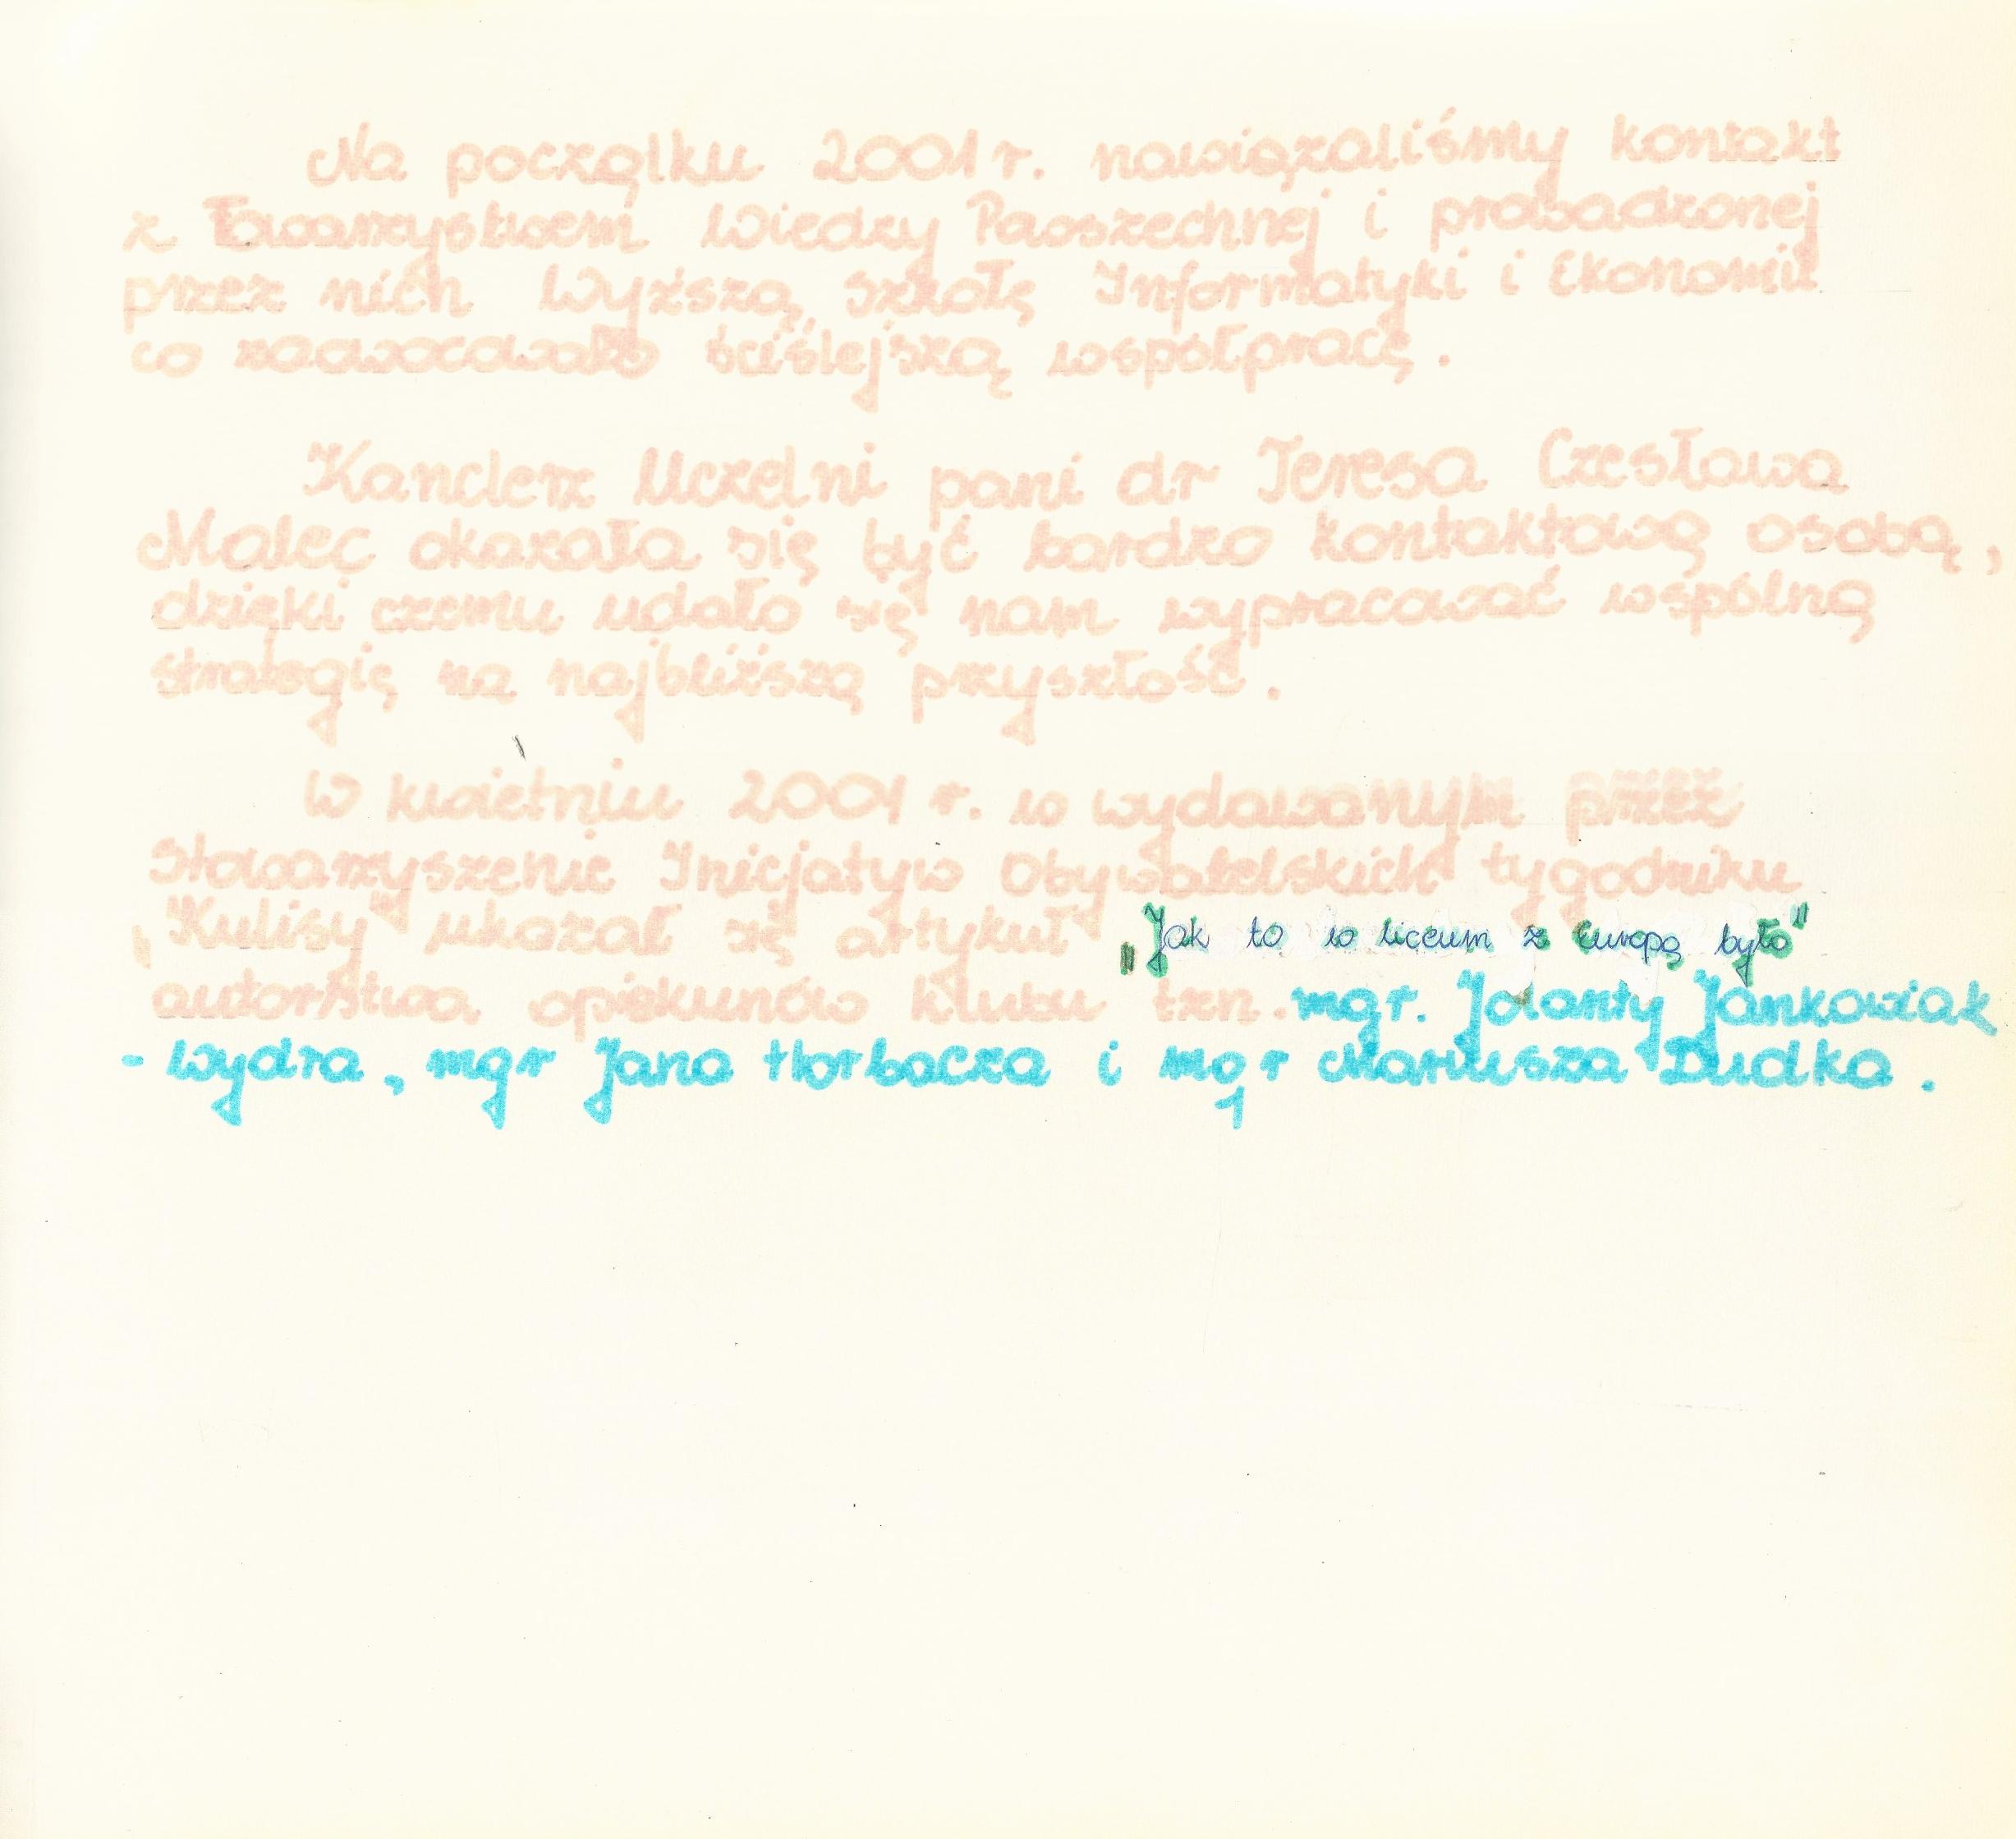 Na początku 2001 r. nawiązaliśmy kontakt
z Towarzystwem Wiedzy Powszechnej i prowadzonej
przez nich Wyższą Szkołę Informatyki i Ekonomii
co zaowocowało ściślejszą współpracę.
Kanclerz Uczelni pani dr Teresa Czesława
Malec okazała się być bardzo kontaktową osobą,
dzięki czemu udało się nam wypracować wspólną
strategię na najbliższą przyszłość.
W kwietniu 2001 r. w wydawanym przez
Stowarzyszenie Inicjatyw Obywatelskich tygodniku
„Kulisy" ukazał się artykuł „Jak to w liceum z Europą było"
autorstwa opiekunów klubu tzn. mgr. Jolanty Jankowiak
- Wydra, mgr Jana Horbacza i mgr Mariusza Dudka.